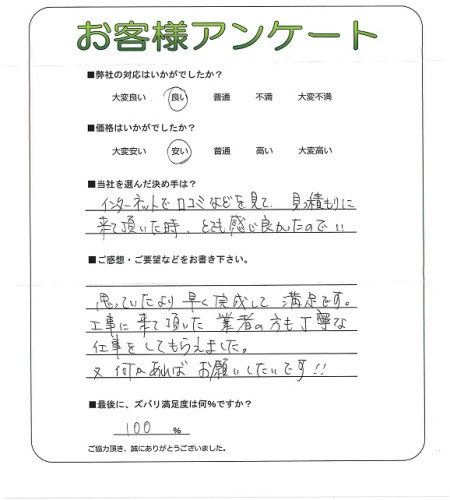 お客様アンケート
■弊社の対応はいかがでしたか？
大変良い 良い 普通 不満 大変不満
■価格はいかがでしたか？
大変安い 安い 普通 高い 大変高い
■当社を選んだ決め手は？
インターネットで口コミなどを見て、見積もりに
来て頂いた時、とても感じ良かたので!!
■ご感想・ご要望などをお書き下さい。
思っていたより早く完成して満足です。
工事に来て頂いた業者の方も丁寧な
仕事をしてもらえました。
又何かあればお願いしたいです!!
■最後に、ズバリ満足度は何%ですか？
100 %
ご協力頂き、誠にありがとうございました。